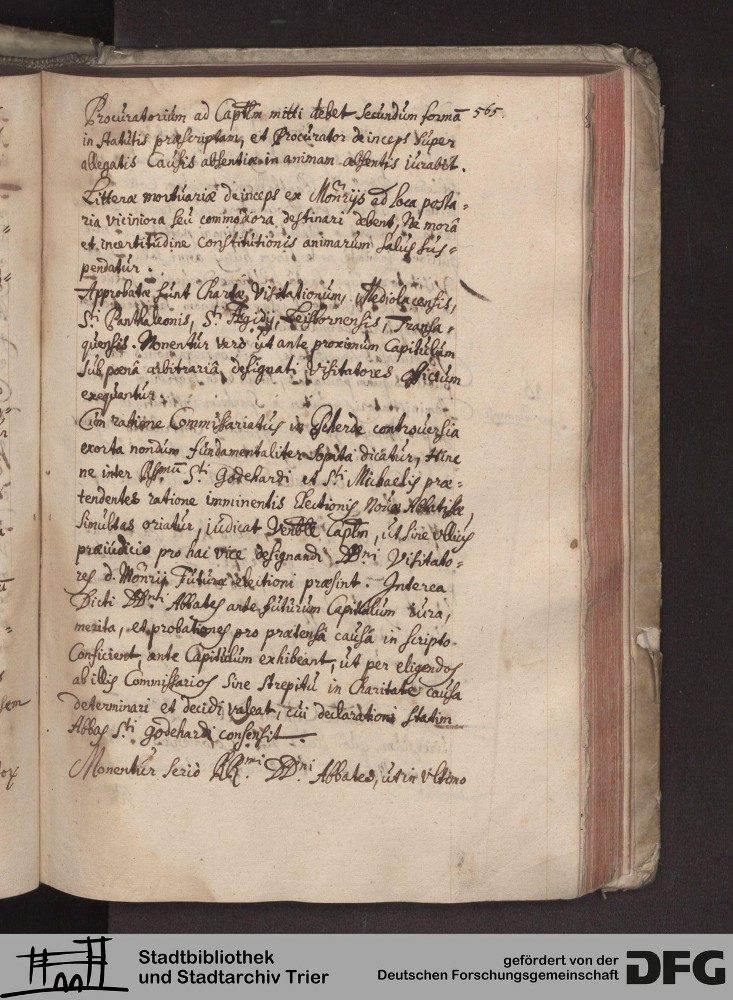 Procuratorium ad Captlm mitti debet secundum formā 565.
in statutis praescriptam, et Procurator deinceps super
allegatis causis absentiae in animam absentis iurabit.
Litterae mortuariae deinceps ex Monrijs ad loca posta=
ria viciniora seu commodiora destinari debent, Ne morâ
et incertitudine constitutionis animarum salus sus=
pendatur.
Approbatae sunt Chartae Visitationum, Mediolacensis,
Sti Panthaleonis, Sti Aegidij, Leisbornensis, Transa=
quensis. Monentur verò ut ante proximum Capitulum
sub poenâ arbitrariâ designati Visitatores officium
exequantur.
Cum ratione Commissariatus in Escherde controversia
exorta nondum fundamentaliter sopita dicatur, Hinc
ne inter RRmos Sti Godehardi et Sti Michaelis prae=
tendentes ratione imminentis Electionis novae Abbatissae,
simultas oriatur, judicat Venble Captlm, ut sine ullius
praeiudicio pro hac vice designandi DDni Visitato=
res d. Monrij Futurae electioni praesint. Interea
Dicti DDni Abbates ante futurum Capitulum iura,
merita, et probationes pro praetensâ causâ in scripto
Conficient, ante Capitulum exhibeant, ut per eligendos
ab illis Commissarios sine strepitu in Charitate causa
determinari et decidi valeat, cui declarationi statim
Abbas Sti godehardi consensit.
Monentur seriò RRmi DDni Abbates, ut in ultimo
sem
ox
Stadtbibliothek
und Stadtarchiv Trier
gefördert von der
Deutschen Forschungsgemeinschaft
DFG